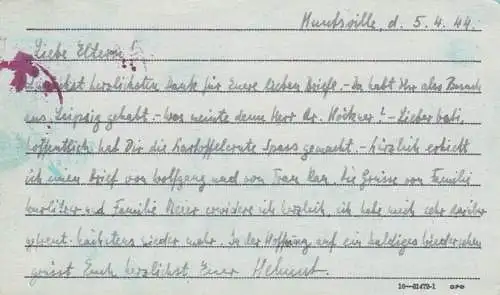 Huntsville, d. 5.4.44.
Liebe Eltern!
herzlichsten Dank für Eure lieben Briefe. - Da habt Ihr also Besuch
aus Leipzig gehabt. - Was meinte denn Herr Dr. - Lieber Vati,
hoffentlich hat Dir die Kartoffelernte Spass gemacht. - Kürzlich erhielt
ich einen Brief von Wolfgang und von Frau Die Grüsse von Familie
und Familie Meier erwidere ich herzlich, ich habe mich sehr darüber
gefreut. Nächstens wieder mehr. In der Hoffnung auf ein baldiges Wiedersehen
grüsst Euch herzlichst Euer Helmut.
16-81479-1 GPO